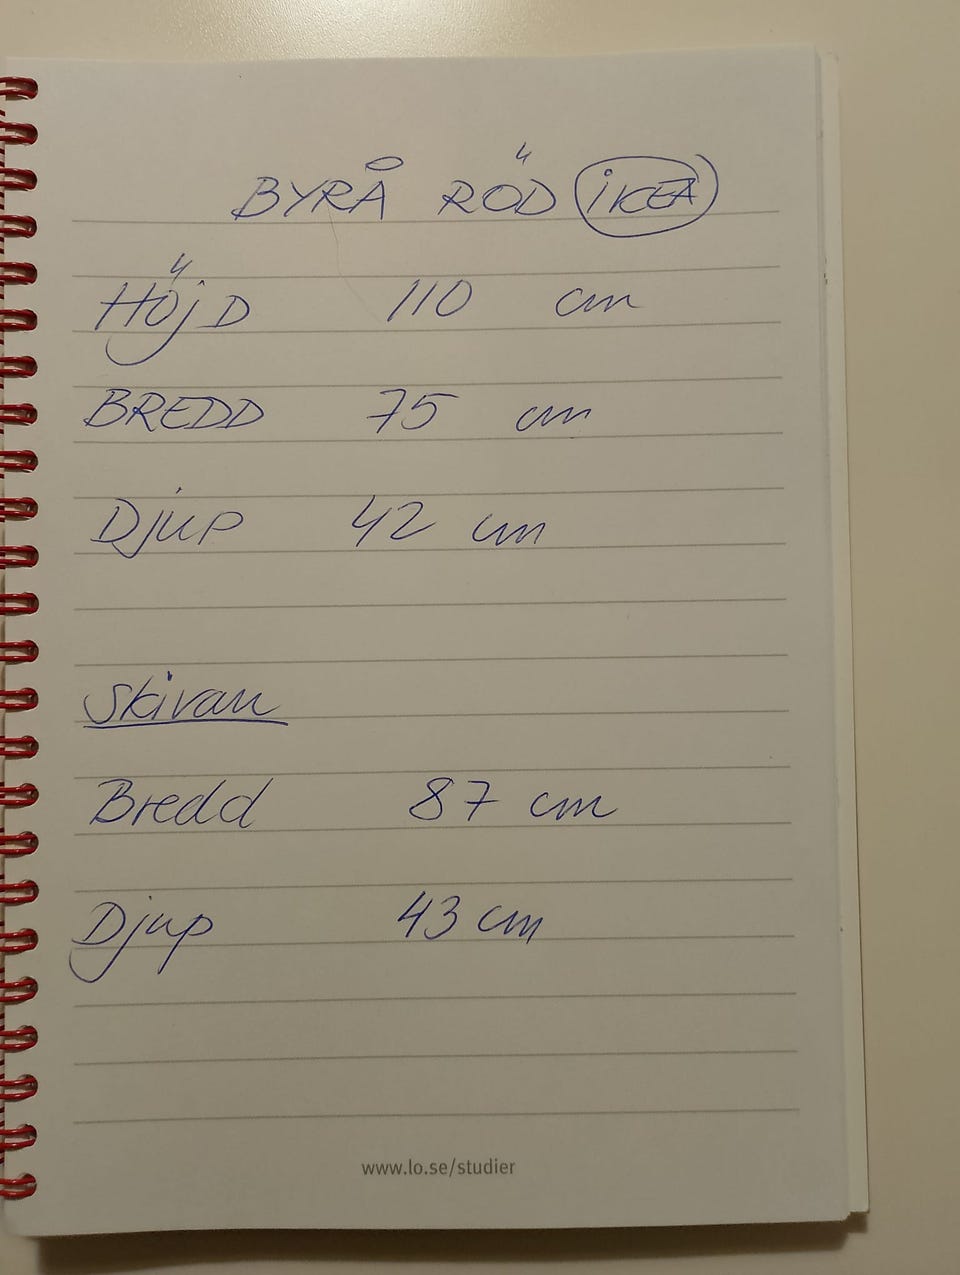 BYRÅ RÖD IKEA
HÖjD 110 cm
BREDD 75 cm
Djup 42 cm
Skivan
Bredd 87 cm
Djup 43 cm
www.lo.se/studier